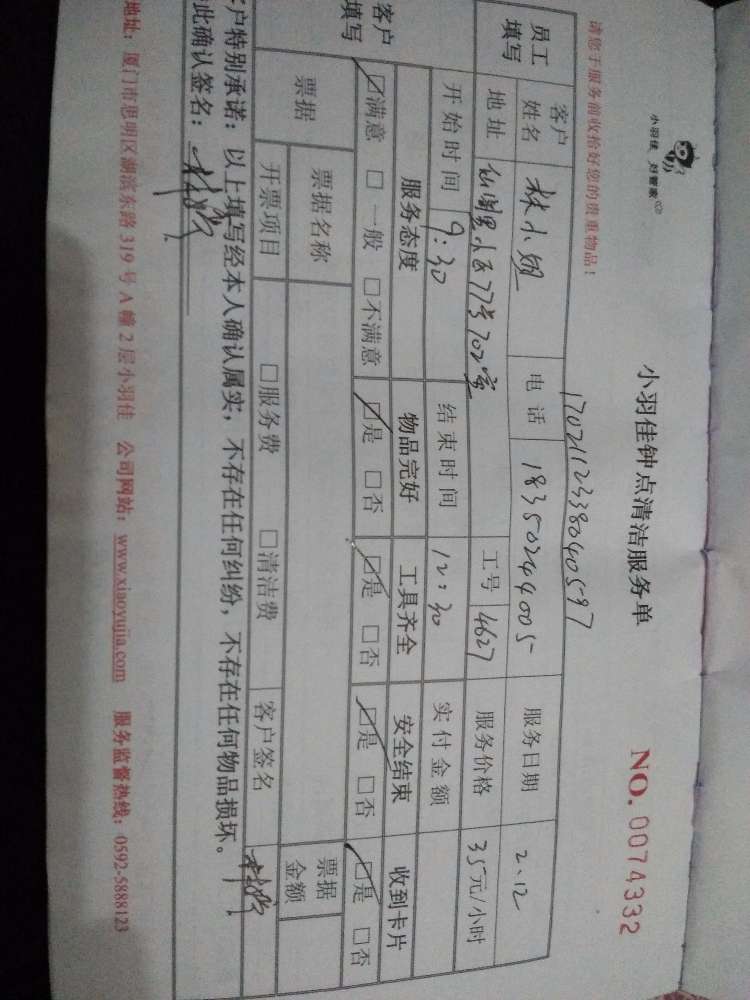 小羽佳 好管家
小羽佳钟点清洁服务单
NO. 0074332
请您于服务前收拾好您的贵重物品！
1702112338040597
员工填写 客户姓名 林小姐 电话 18350244005 服务日期 2.12
地址 仙阁里小区77号702室 工号 4627 服务价格 35元/小时
开始时间 9:30 结束时间 12:30 实付金额
客户填写 服务态度 物品完好 工具齐全 安全结束 收到卡片
☑满意 □一般 □不满意 ☑是 □否 ☑是 □否 ☑是 □否 ☑是 □否
票据 票据名称 票据金额
开票项目 □服务费 □清洁费 客户签名
客户特别承诺：以上填写经本人确认属实，不存在任何纠纷，不存在任何物品损坏。
此确认签名：
地址：厦门市思明区湖滨东路319号A幢2层小羽佳 公司网站：www.xiaoyujia.com 服务监督热线：0592-5888123